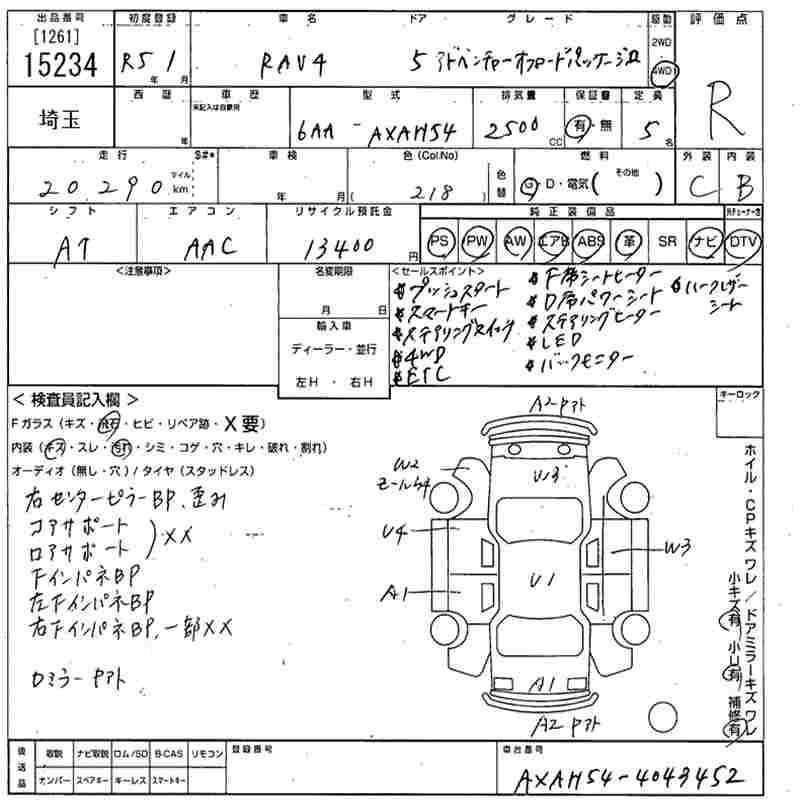 出品番号 初度登録 車名 ドア グレード 駆動 評価点
[1261]
15234 R5年 1月 RAV4 5 アドベンチャーオフロードパッケージⅡ 2WD 4WD R
埼玉 西暦 年 車歴 未記入は自家用 型式 6AA - AXAH54 排気量 2500 CC 保証書 有・無 定員 5名
走行 20,290 マイル km $#* 車検 年 月 色(Col.No) (218) 色替 燃料 G・D・電気 (その他) 外装 C 内装 B
シフト AT エアコン AAC リサイクル預託金 13400円 純正装備品 PS PW AW エアB ABS 革 SR ナビ DTV
<注意事項>
名変期限
月 日
輸入車
ディーラー・並行
左H・右H
<セールスポイント>
プッシュスタート
スマートキー
ステアリングスイッチ
4WD
ETC
F席シートヒーター
D席パワーシート
ステアリングヒーター
LED
バックモニター
ハーフレザー
シート
<検査員記入欄>
Fガラス(キズ・飛石・ヒビ・リペア跡・X要)
内装(キズ・スレ・汚れ・シミ・コゲ・穴・キレ・破れ・割れ)
オーディオ(無し・穴)/タイヤ(スタッドレス)
右センターピラーBP、歪み
コアサポート
ロアサポート )XX
FインパネBP
左FインパネBP
右FインパネBP、一部XX
Dミラーヤアト
キーロック
A2ヤアト
W2
モールヌケ
U3
U4
W3
A1
U1
A1
A2ヤアト
ホイル・CPキズ ワレ/ドアミラーキズ ワレ
小キズ有 小U有 補修有
後送品 取説 ナビ取説 ロム/SD B-CAS リモコン
ナンバー スペアキー キーレス スマートキー
登録番号
車台番号
AXAH54-4043452